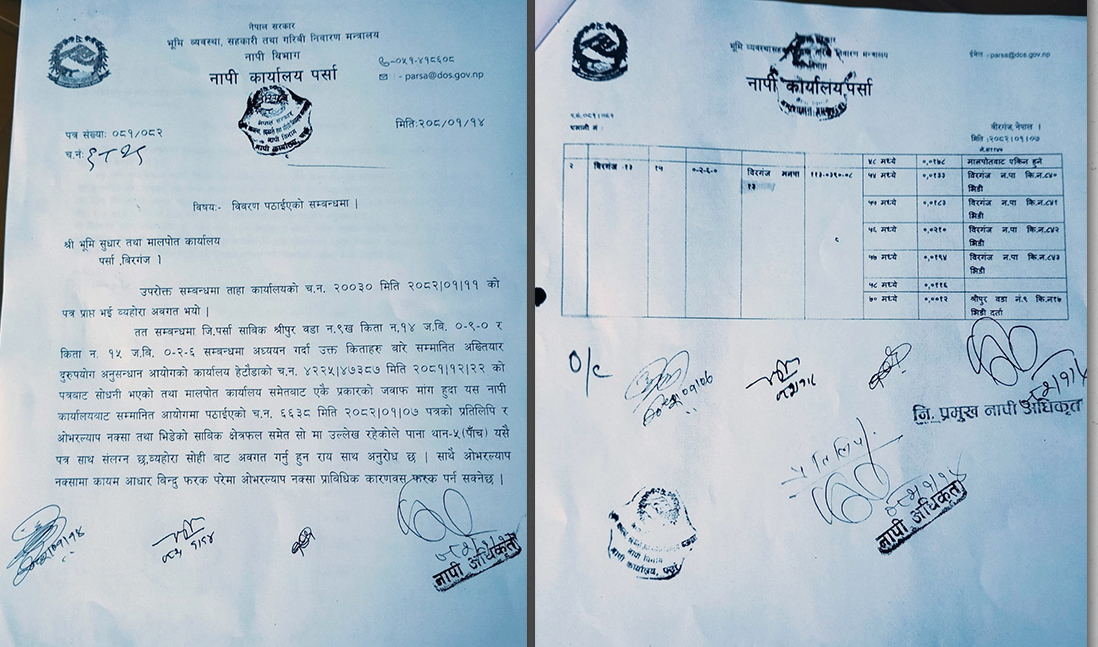 नेपाल सरकार
भूमि व्यवस्था, सहकारी तथा गरिबी निवारण मन्त्रालय
नापी विभाग
नापी कार्यालय पर्सा
०५१-४१८६०८
:- parsa@dos.gov.np
पत्र संख्याः ०८१/०८२
मितिः२०८/०१/१४
च.नं:
विषयः- विवरण पठाईएको सम्बन्धमा |
श्री भूमि सुधार तथा मालपोत कार्यालय
पर्सा ,बिरगंज |
उपरोक्त सम्बन्धमा ताहा कार्यालयको च.न. २००३० मिति २०८२|०१|११ को
पत्र प्राप्त भई व्यहोरा अवगत भयो |
तत सम्बन्धमा जि.पर्सा साविक श्रीपुर वडा न.९ख किता न.१४ ज.बि. ०-९-० र
किता न. १५ ज.बि. ०-२-६ सम्बन्धमा अध्ययन गर्दा उक्त किताहरु बारे सम्मानित अख्तियार
दुरुपयोग अनुसन्धान आयोगको कार्यालय हेटौडाको च.न. ४२२५|४७३८७ मिति २०८१|१२|२२ को
पत्रबाट सोधनी भएको तथा मालपोत कार्यालय समेतबाट एकै प्रकारको जवाफ मांग हुदा यस नापी
कार्यालयबाट सम्मानित आयोगमा पठाईएको च.न. ६६३८ मिति २०८२|०१|०७ पत्रको प्रतिलिपि र
ओभरल्याप नक्सा तथा भिडेको साबिक क्षेत्रफल समेत सो मा उल्लेख रहेकोले पाना थान-५(पाँच) यसै
पत्र साथ संलग्न छ,व्यहोरा सोही बाट अवगत गर्नु हुन राय साथ अनुरोध छ | साथै ओभरल्याप
नक्सामा कायम आधार बिन्दु फरक परेमा ओभरल्याप नक्सा प्राविधिक कारणवस फरक पर्न सक्नेछ |
नापी अधिकृत
नापी कार्यालय,पर्सा
ईमेल - parsa@dos.gov.np
वीरगंज,नेपाल |
मिति :२०८२|०१|०७
२ बिरगंज -१३ १५ ०-२-६-० बिरगंज मनपा १३ ११३-०३९०-०८
४८ मध्ये ०,०१७८ मालपोतबाट एकिन हुने
५४ मध्ये ०,०१३३ बिरगंज न.पा कि.न.८४० भिडी
५५ मध्ये ०,०१८३ बिरगंज न.पा कि.न.८४१ भिडी
५६ मध्ये ०,०२१० बिरगंज न.पा कि.न.८४२ भिडी
५७ मध्ये ०,०१९४ बिरगंज न.पा कि.न.८४३ भिडी
५८ मध्ये ०,०११६
७० मध्ये ०,००१२ श्रीपुर वडा नं.९ कि.न१७ भिडी दर्ता
O/C
नि. प्रमुख नापी अधिकृत
प्रतिलिपि
नापी अधिकृत